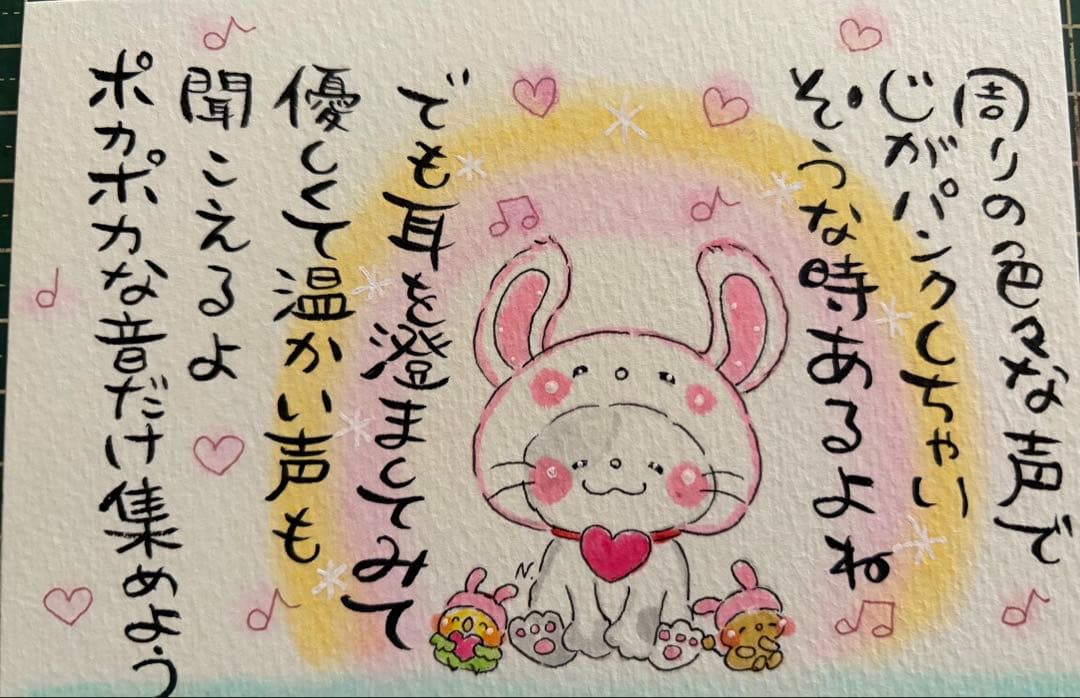 周りの色々な声で
じがパンクしちゃい
そうな時あるよね
でも耳を澄ましてみて
優しくて温かい声も
聞こえるよ
ポカポカな音だけ集めよう
N.